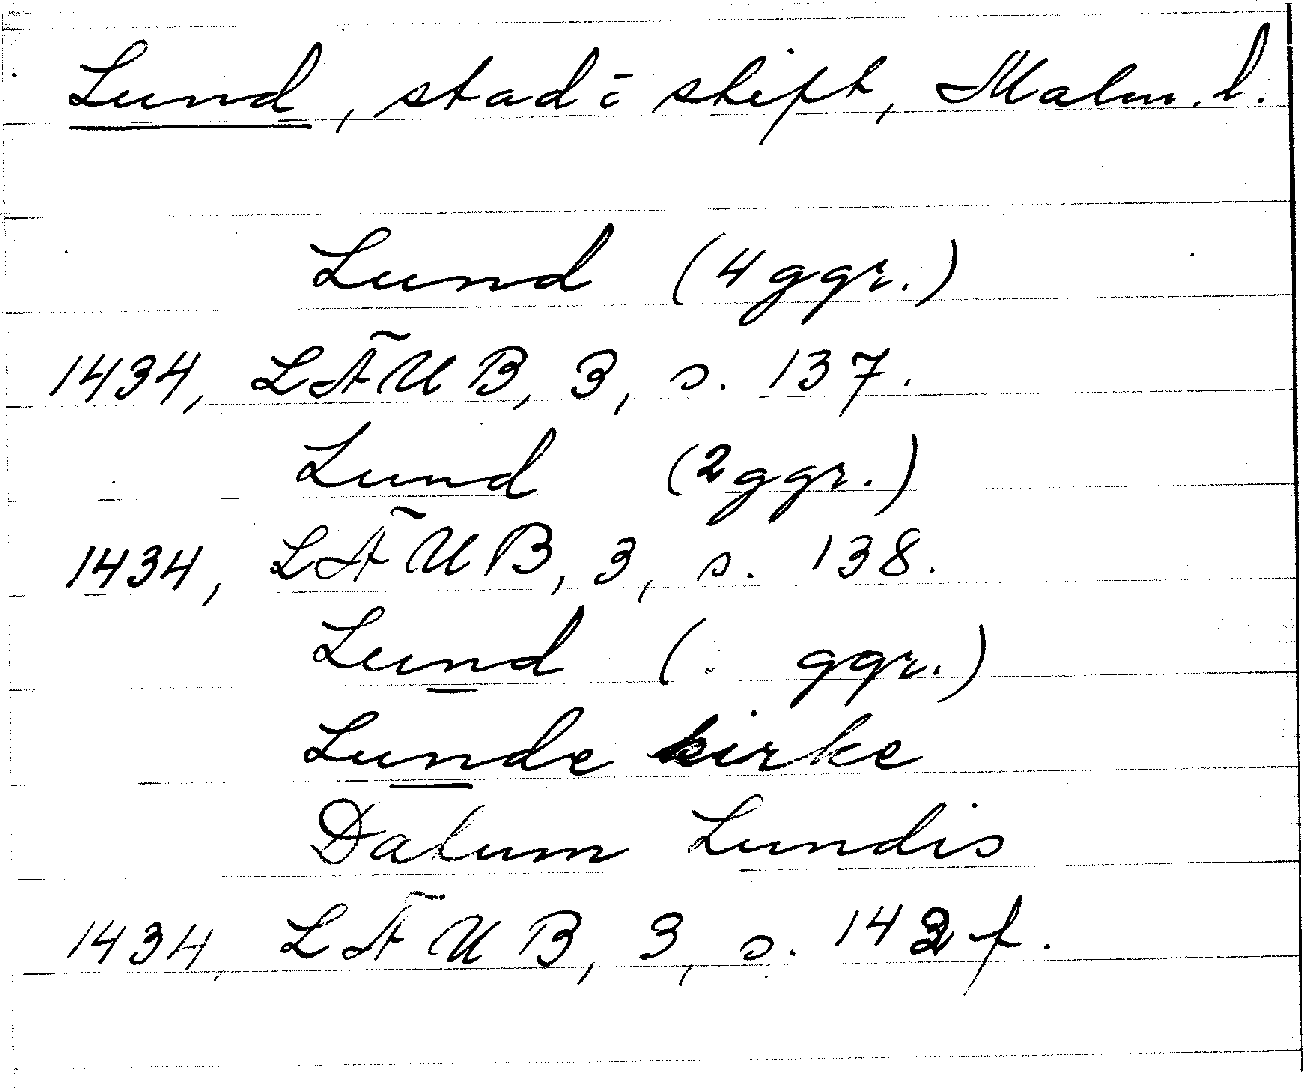 Lund, stad o stift, Malm. l.
Lund (4 ggr.)
1434, LÄUB, 3, s. 137.
Lund (2 ggr.)
1434, LÄUB, 3, s. 138.
Lund ( ggr.)
Lunde kirke
Datum Lundis
1434, LÄUB, 3, s. 142 f.